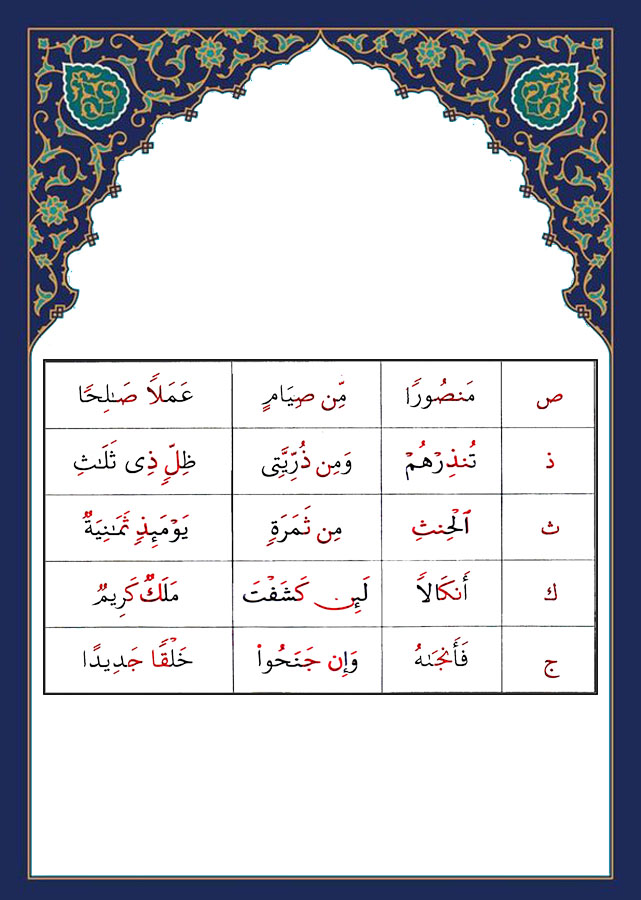 ص مَنصُورًا مِّن صِيَامٍ عَمَلًا صَـٰلِحًا
ذ تُنذِرْهُمْ وَمِن ذُرِّيَّتِى ظِلٍّ ذِى ثَلَـٰثِ
ث ٱلْحِنثِ مِن ثَمَرَةٍ يَوْمَئِذٍ ثَمَـٰنِيَةٌ
ك أَنكَالًا لَئِن كَشَفْتَ مَلَكٌ كَرِيمٌ
ج فَأَنجَيْنَـٰهُ وَإِن جَنَحُوا۟ خَلْقًا جَدِيدًا